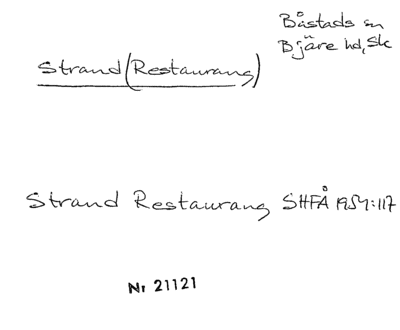 Båstads sn
Bjäre hd, Sk
Strand (Restaurang)
Strand Restaurang SHFÅ 1954:117
Nr 21121